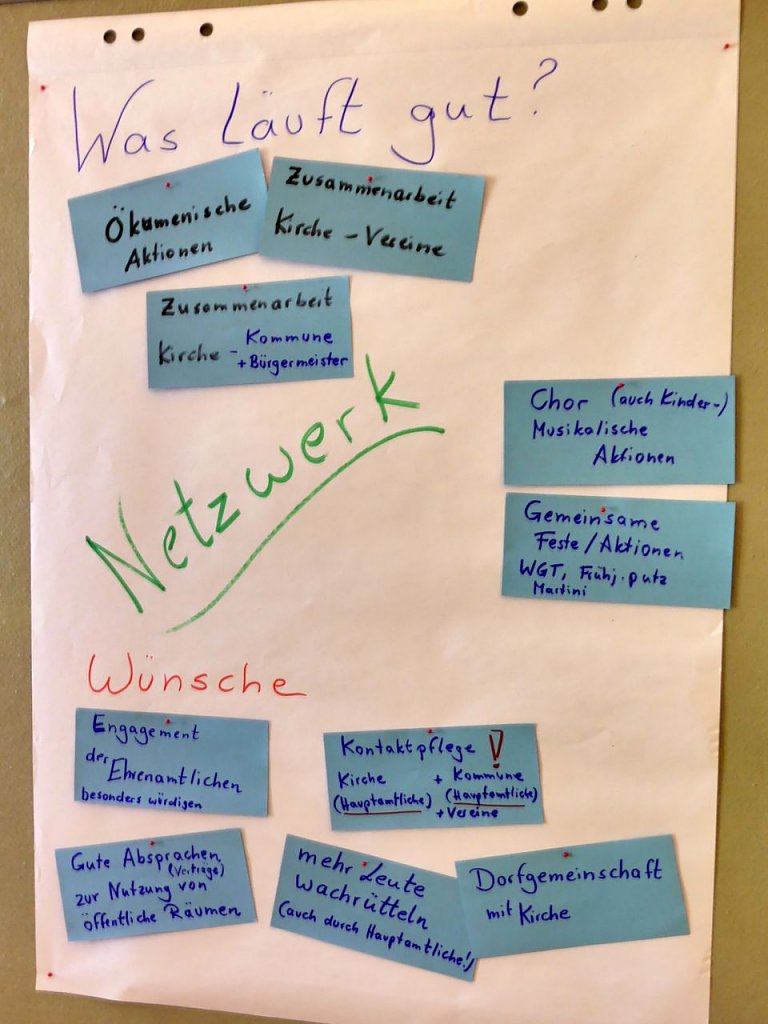 Was läuft gut?
Ökumenische
Aktionen
Zusammenarbeit
Kirche - Vereine
Zusammenarbeit
Kirche - Kommune
+ Bürgermeister
Netzwerk
Chor (auch Kinder-)
Musikalische
Aktionen
Gemeinsame
Feste/Aktionen
WGT, Frühj.putz
Martini
Wünsche
Engagement
der Ehrenamtlichen
besonders würdigen
Kontaktpflege !
Kirche + Kommune
(Hauptamtliche) (Hauptamtliche)
+ Vereine
Gute Absprachen
(Verträge)
zur Nutzung von
öffentliche Räumen
mehr Leute
wachrütteln
(auch durch Hauptamtliche!)
Dorfgemeinschaft
mit Kirche